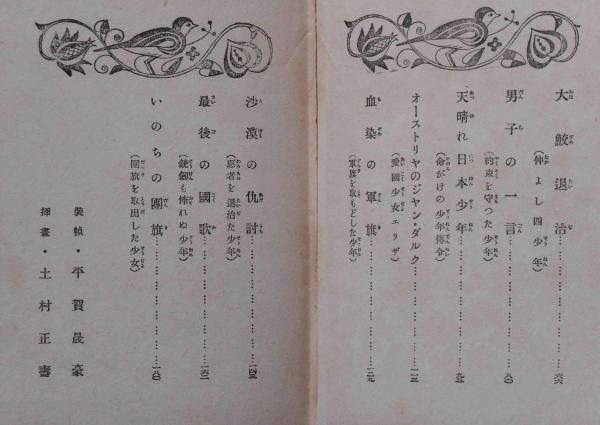 大鮫退治…………………六六
(仲よし四少年)
男子の一言…………………八〇
(約束を守つた少年)
天晴れ日本少年…………………九七
(命がけの少年傳令)
オーストリヤのジャン・ダルク…………………一一三
(愛國少女エリザ)
血染の軍旗…………………一二九
(軍旗を取もどした少年)
沙漠の仇討…………………一四五
(惡者を退治た少年)
最後の國歌…………………一六二
(銃劍も怖れぬ少年)
いのちの團旗…………………一八〇
(團旗を取出した少女)
裝幀・平賀晟豪
揷畫・土村正壽